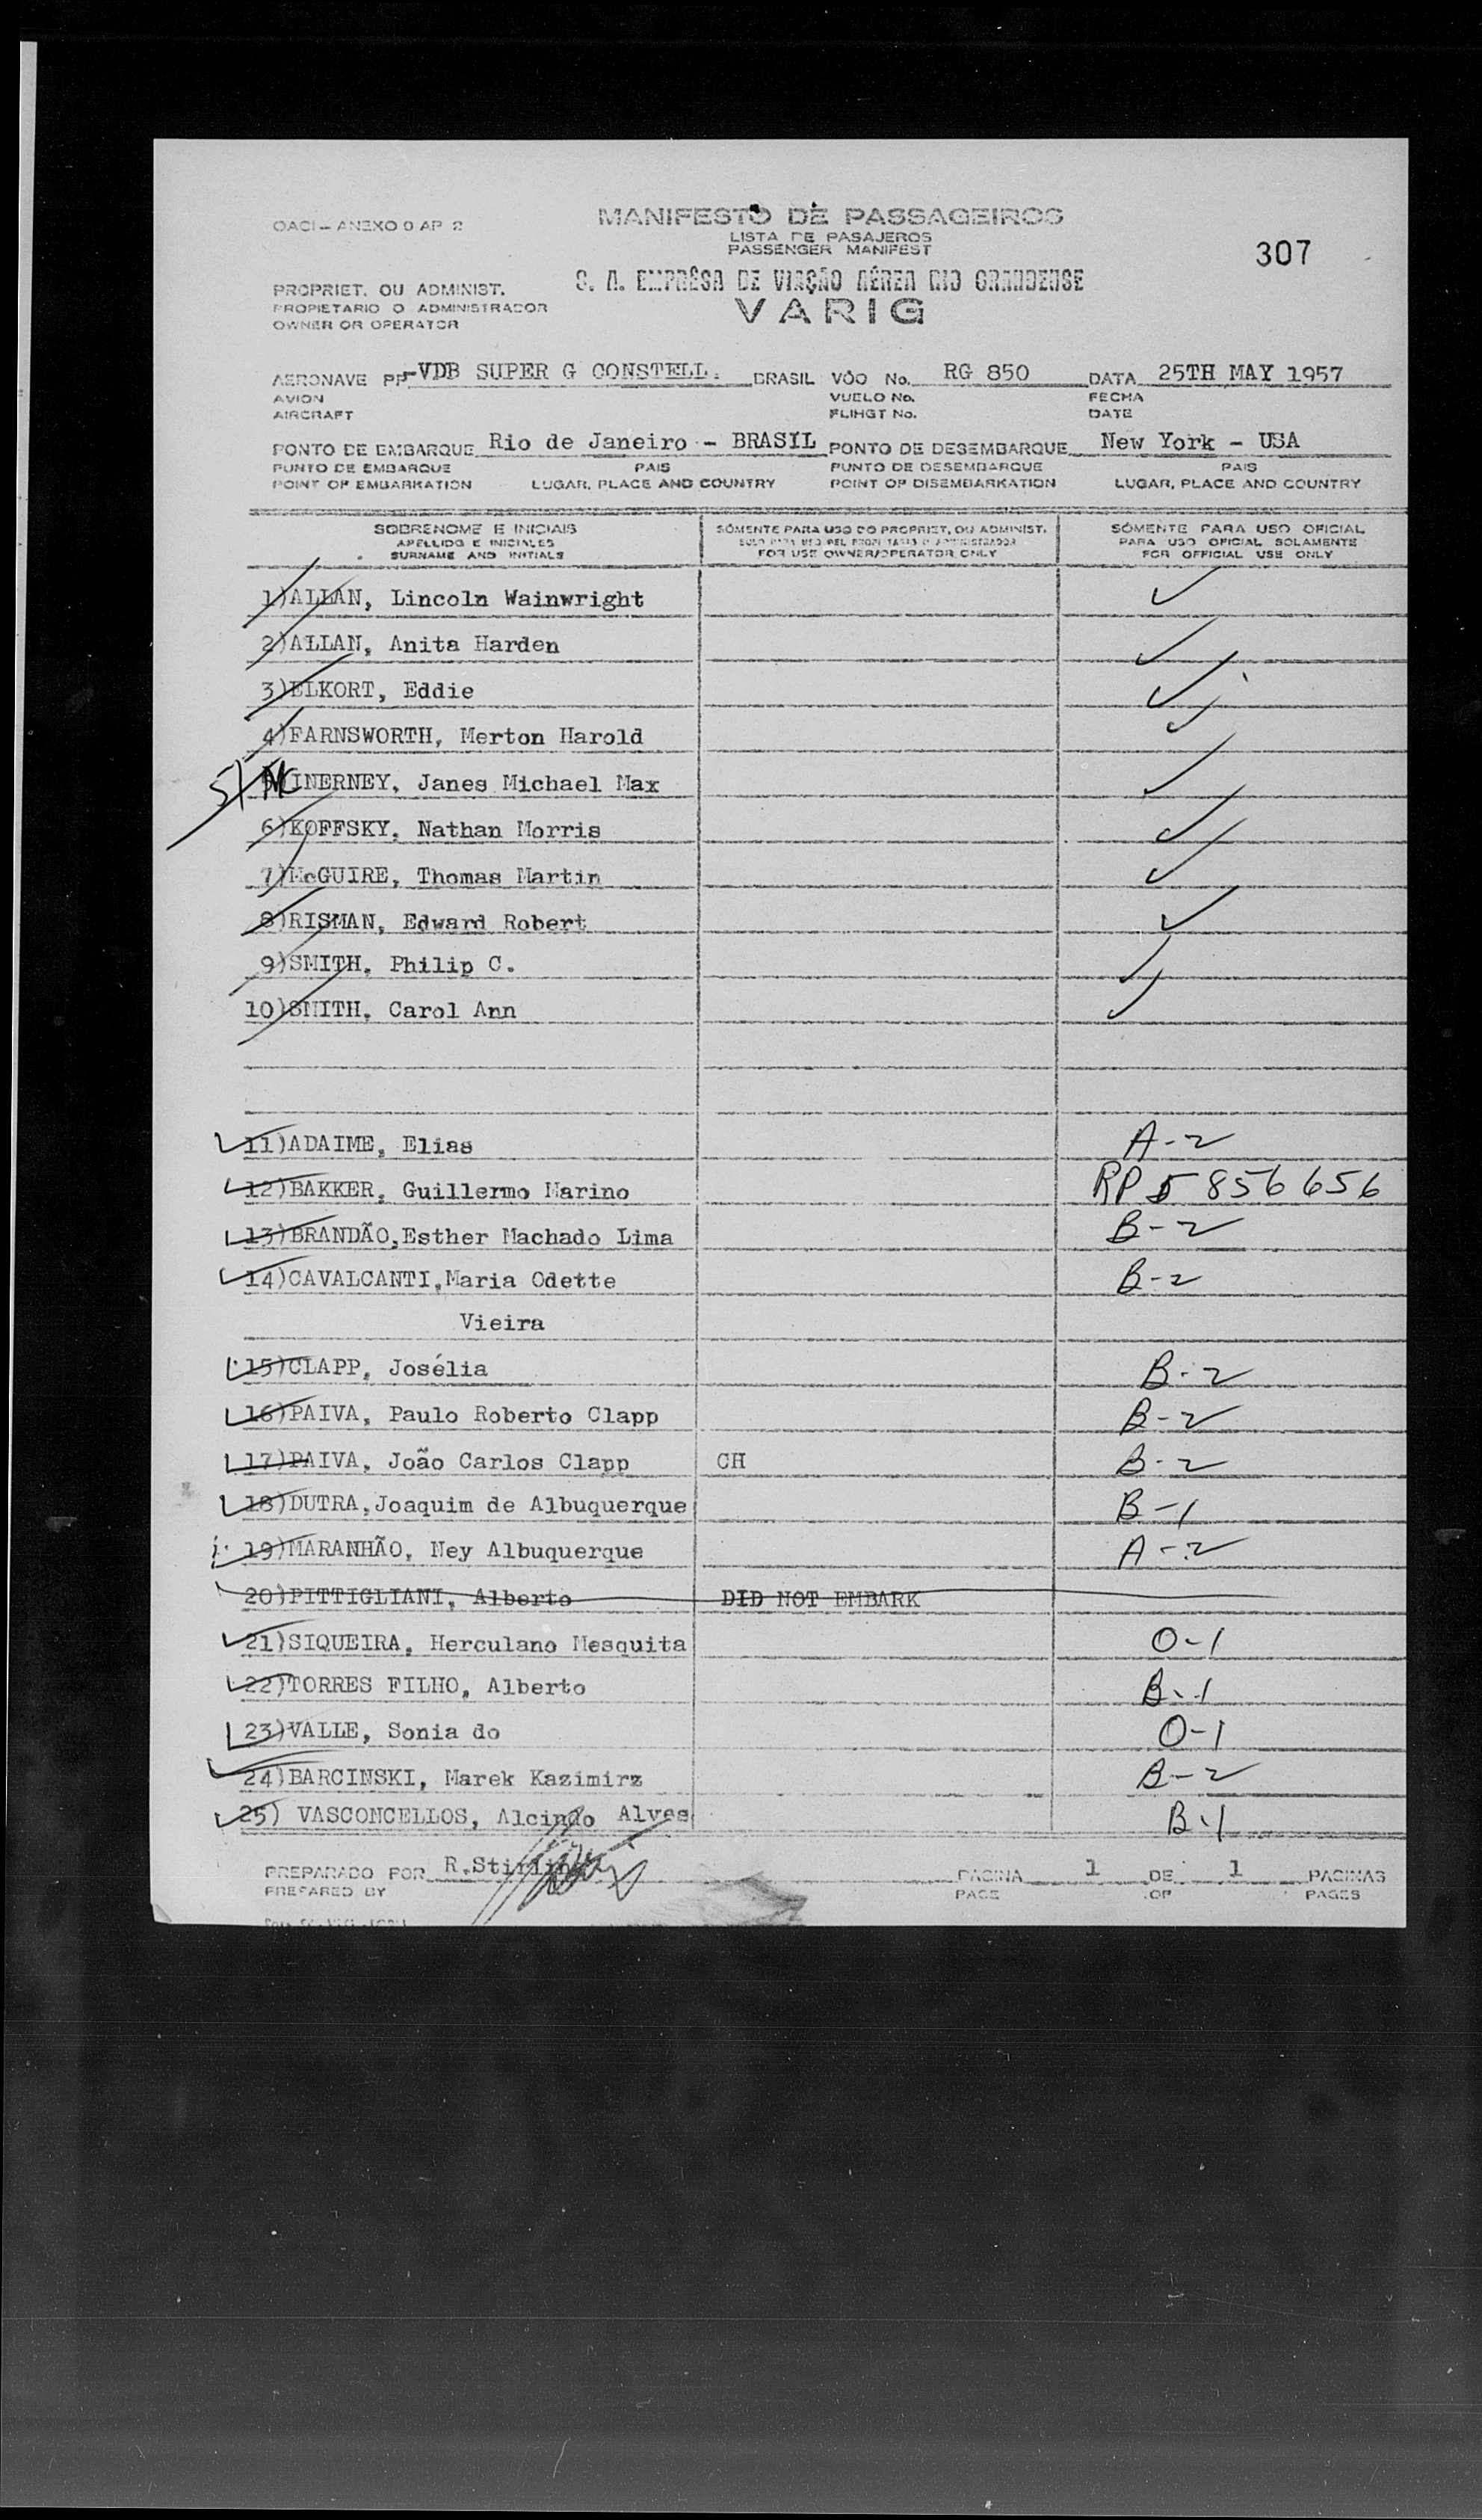 OACI — ANEXO 9 AP 2
MANIFESTO DE PASSAGEIROS
LISTA DE PASAJEROS
PASSENGER MANIFEST
307
S. A. EMPRÊSA DE VIAÇÃO AÉREA RIO GRANDENSE
VARIG
PROPRIET. OU ADMINIST.
PROPIETARIO O ADMINISTRADOR
OWNER OR OPERATOR
AERONAVE PP-VDB SUPER G CONSTELL. BRASIL VÔO No. RG 850 DATA 25TH MAY 1957
AVION VUELO No. FECHA
AIRCRAFT FLIHGT No. DATE
PONTO DE EMBARQUE Rio de Janeiro - BRASIL PONTO DE DESEMBARQUE New York - USA
PUNTO DE EMBARQUE PAIS PUNTO DE DESEMBARQUE PAIS
POINT OF EMBARKATION LUGAR, PLACE AND COUNTRY POINT OF DISEMBARKATION LUGAR, PLACE AND COUNTRY
SOBRENOME E INICIAIS SÓMENTE PARA USO DO PROPRIET, OU ADMINIST. SÓMENTE PARA USO OFICIAL
APELLIDO E INICIALES PARA USO OFICIAL SOLAMENTE
SURNAME AND INITIALS FOR USE OWNER/OPERATOR ONLY FOR OFFICIAL USE ONLY
1)ALLAN, Lincoln Wainwright ✓
2)ALLAN, Anita Harden ✓
3)ELKORT, Eddie ✓
4)FARNSWORTH, Merton Harold ✓
5) McINERNEY, Janes Michael Max ✓
6)KOFFSKY, Nathan Morris ✓
7)McGUIRE, Thomas Martin ✓
8)RISMAN, Edward Robert ✓
9)SMITH, Philip C. ✓
10)SMITH, Carol Ann ✓
11)ADAIME, Elias A-2
12)BAKKER, Guillermo Marino RP 5 856 656
13)BRANDÃO,Esther Machado Lima B-2
14)CAVALCANTI,Maria Odette B-2
Vieira
15)CLAPP, Josélia B-2
16)PAIVA, Paulo Roberto Clapp B-2
17)PAIVA, João Carlos Clapp CH B-2
18)DUTRA,Joaquim de Albuquerque B-1
19)MARANHÃO, Ney Albuquerque A-2
20)PITTIGLIANI, Alberto DID NOT EMBARK
21)SIQUEIRA, Herculano Mesquita O-1
22)TORRES FILHO, Alberto B-1
23)VALLE, Sonia do O-1
24)BARCINSKI, Marek Kazimirz B-2
25) VASCONCELLOS, Alcindo Alves B-1
PREPARADO POR R.Stirling PAGINA 1 DE 1 PAGINAS
PREPARED BY PAGE OF PAGES